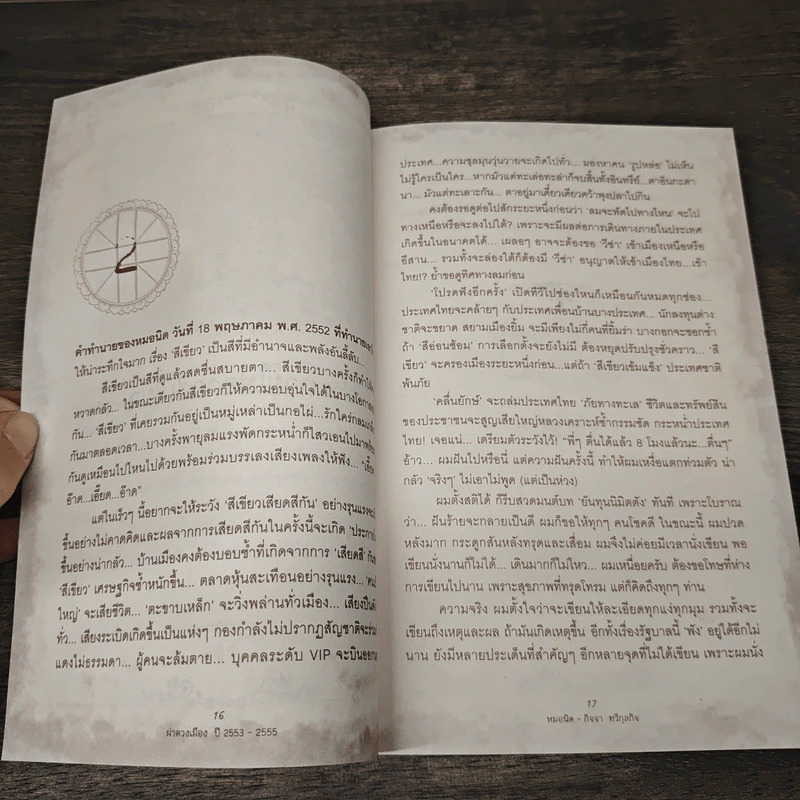 ๔
คำทำนายของหมอนิด วันที่ 18 พฤษภาคม พ.ศ. 2552 ที่ทำนาย
ให้น่าระทึกใจมาก เรื่อง 'สีเขียว' เป็นสีที่มีอำนาจและพลังอันลี้ลับ...
สีเขียวเป็นสีที่ดูแล้วสดชื่นสบายตา... สีเขียวบางครั้งก็ทำให้
หวาดกลัว... ในขณะเดียวกันสีเขียวก็ให้ความอบอุ่นใจได้ในบางโอกาส
กัน... 'สีเขียว' ที่เคยรวมกันอยู่เป็นหมู่เหล่าเป็นกอไผ่...รักใคร่กลม
กันมาตลอดเวลา...บางครั้งพายุลมแรงพัดกระหน่ำก็ไสวเอนไปมา
กันดูเหมือนไปไหนไปด้วยพร้อมร่วมบรรเลงเสียงเพลงให้ฟัง... "เอี๊ยด
อ๊าด...เอี๊ยด...อ๊าด"
แต่ในเร็วๆ นี้อยากจะให้ระวัง 'สีเขียวเสียดสีกัน' อย่างรุนแรง
ขึ้นอย่างไม่คาดคิดและผลจากการเสียดสีกันในครั้งนี้จะเกิด 'ประกาย
ขึ้นอย่างน่ากลัว... บ้านเมืองคงต้องบอบช้ำที่เกิดจากการ 'เสียดสี'
'สีเขียว' เศรษฐกิจซ้ำหนักขึ้น... ตลาดหุ้นสะเทือนอย่างรุนแรง...
ใหญ่' จะเสียชีวิต... 'ตะขาบเหล็ก' จะวิ่งพล่านทั่วเมือง... เสียงปืน
ทั่ว... เสียงระเบิดเกิดขึ้นเป็นแห่งๆ กองกำลังไม่ปรากฏสัญชาติจะ
แดงไม่ธรรมดา... ผู้คนจะล้มตาย... บุคคลระดับ VIP จะบินออก
16
ผ่าดวงเมือง ปี 2553 - 2555
ประเทศ...ความชุลมุนวุ่นวายจะเกิดไปทั่ว... มองหาคน 'รูปหล่อ' ไม่เห็น
ไม่รู้ใครเป็นใคร...หากมัวแต่ทะเล่อทะล่าก็จบสิ้นทั้งอินทรีย์...ตาอินกะตา
นา... มัวแต่ทะเลาะกัน... ตาอยู่มาเดี๋ยวเดียวคว้าพุงปลาไปกิน
คงต้องรอดูต่อไปสักระยะหนึ่งก่อนว่า 'ลมจะพัดไปทางไหน' จะไป
ทางเหนือหรือจะลงไปใต้? เพราะจะมีผลต่อการเดินทางภายในประเทศ
เกิดขึ้นในอนาคตได้... เผลอๆ อาจจะต้องขอ 'วีซ่า' เข้าเมืองเหนือหรือ
อีสาน... รวมทั้งจะล่องใต้ก็ต้องมี 'วีซ่า' อนุญาตให้เข้าเมืองไทย...เข้า
ไทย!? ย้ำขอดูทิศทางลมก่อน
'โปรดฟังอีกครั้ง' เปิดทีวีไปช่องไหนก็เหมือนกันหมดทุกช่อง...
ประเทศไทยจะคล้ายๆ กับประเทศเพื่อนบ้านบางประเทศ... นักลงทุนต่าง
ชาติจะขยาด สยามเมืองยิ้ม จะมีเพียงไม่กี่คนที่ยิ้มร่า บางกอกจะชอกช้ำ
ถ้า 'สีอ่อนซ้อม' การเลือกตั้งจะยังไม่มี ต้องหยุดปรับปรุงชั่วคราว... 'สี
เขียว' จะครองเมืองระยะหนึ่งก่อน...แต่ถ้า 'สีเขียวเข้มแข็ง' ประเทศชาติ
พ้นภัย
'คลื่นยักษ์' จะถล่มประเทศไทย 'ภัยทางทะเล' ชีวิตและทรัพย์สิน
ของประชาชนจะสูญเสียใหญ่หลวงเคราะห์ซ้ำกรรมซัด กระหน่ำประเทศ
ไทย! เจอแน่... เตรียมตัวระวังไว้! "พี่ๆ ตื่นได้แล้ว 8 โมงแล้วนะ...ตื่นๆ"
อ้าว... ผมฝันไปหรือนี่ แต่ความฝันครั้งนี้ ทำให้ผมเหงื่อแตกท่วมตัว น่า
กลัว 'จริงๆ' ไม่เอาไม่พูด (แต่เป็นห่วง)
ผมตั้งสติได้ ก็รีบสวดมนต์บท 'ยันทุนนิมิตตัง' ทันที เพราะโบราณ
ว่า... ฝันร้ายจะกลายเป็นดี ผมก็ขอให้ทุกๆ คนโชคดี ในขณะนี้ ผมปวด
หลังมาก กระดูกสันหลังทรุดและเสื่อม ผมจึงไม่ค่อยมีเวลานั่งเขียน พอ
เขียนนั่งนานก็ไม่ได้... เดินมากก็ไม่ไหว... ผมเหนื่อยครับ ต้องขอโทษที่ห่าง
การเขียนไปนาน เพราะสุขภาพที่ทรุดโทรม แต่ก็คิดถึงทุกๆ ท่าน
ความจริง ผมตั้งใจว่าจะเขียนให้ละเอียดทุกแง่ทุกมุม รวมทั้งจะ
เขียนถึงเหตุและผล ถ้ามันเกิดเหตุขึ้น อีกทั้งเรื่องรัฐบาลนี้ 'พัง' อยู่ได้อีกไม่
นาน ยังมีหลายประเด็นที่สำคัญๆ อีกหลายจุดที่ไม่ได้เขียน เพราะผมนั่ง
17
หมอนิด - กิจจา ทวีกุลกิจ